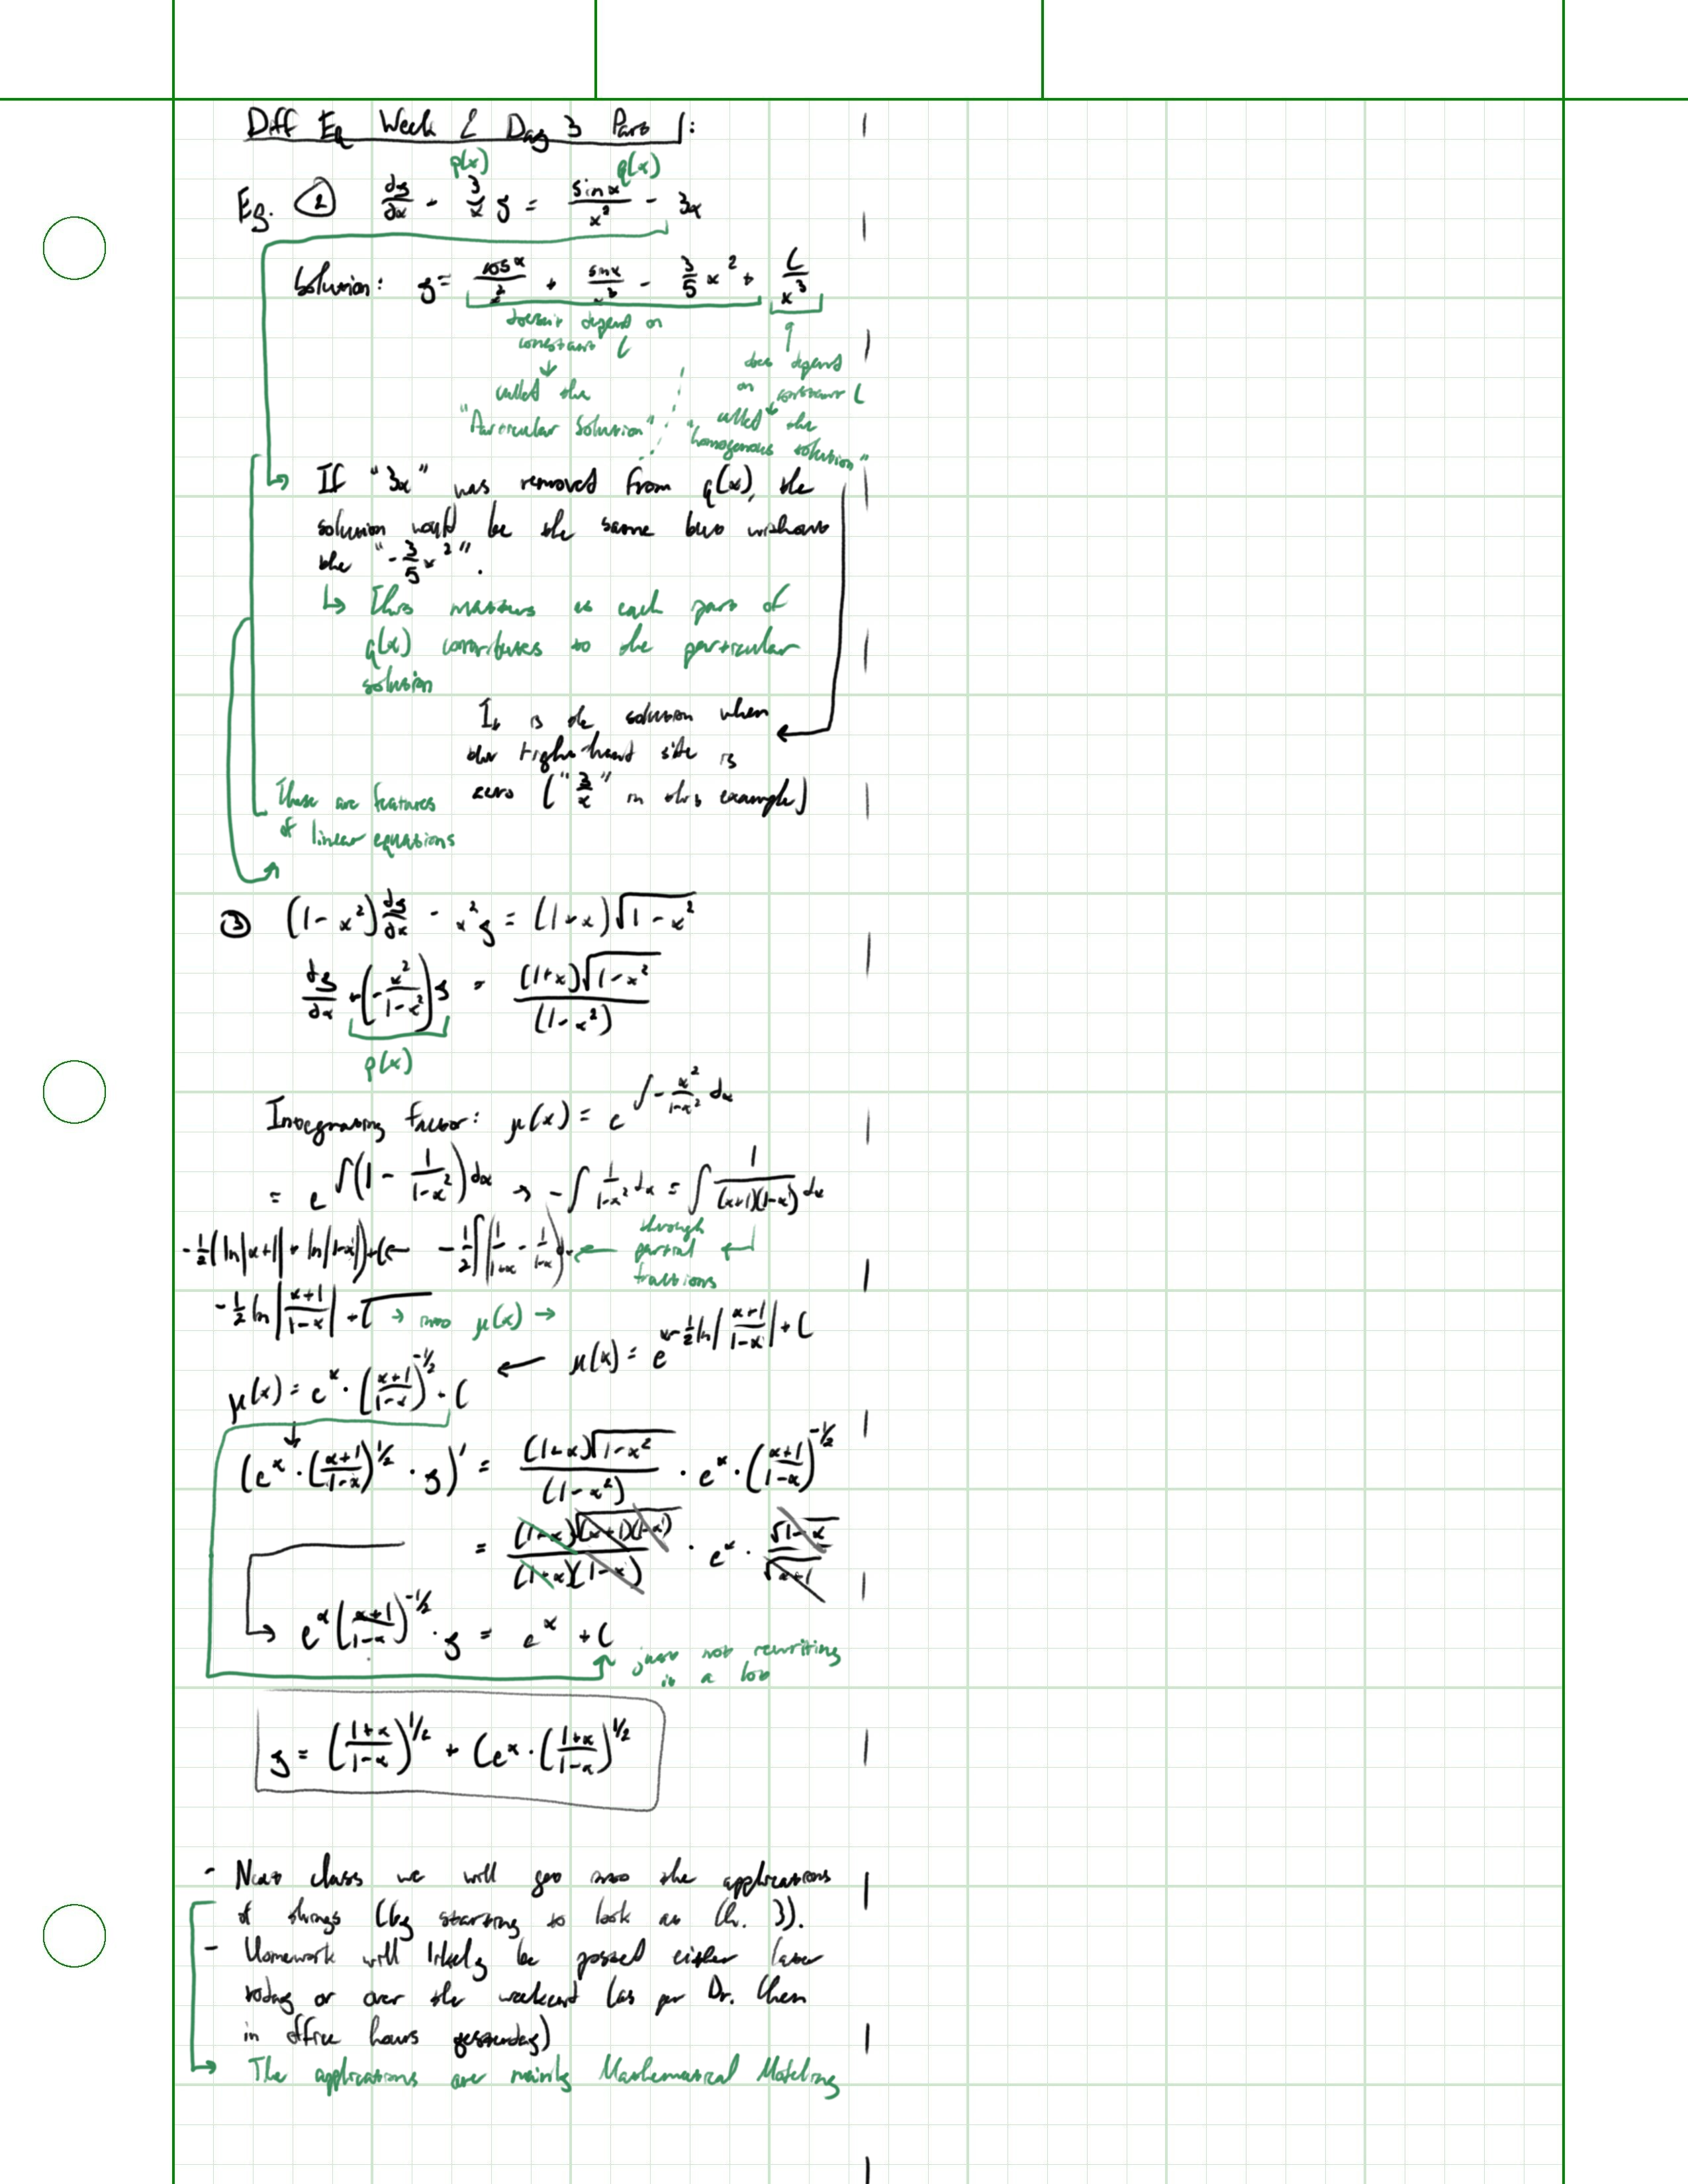 Diff Eq Week 2 Day 3 Part 1:
p(x) q(x)
Eg. ② dy/dx + 3/x y = sinx/x² - 3x
Solution: y = cosx/x² + sinx/x³ - 3/5 x² + C/x³
doesn't depend on
constant C
↓
called the
"Particular Solution"
↑
does depend
on constant C
↓
called the
"homogenous solution"
If "3x" was removed from q(x), the
solution would be the same but without
the "-3/5 x²".
↳ This matters as each part of
q(x) contributes to the particular
solution
It is the solution when
the right-hand side is
zero ("3/x" in this example)
These are features
of linear equations
③ (1-x²) dy/dx - x²y = (1+x)√(1-x²)
dy/dx + (-x²/(1-x²))y = (1+x)√(1-x²)/(1-x²)
p(x)
Integrating factor: μ(x) = e^∫-x²/(1-x²) dx
= e^∫(1 - 1/(1-x²))dx → -∫ 1/(1-x²) dx = ∫ 1/((x+1)(1-x)) dx
-1/2(ln|x+1| + ln|1-x|)+C ← -1/2∫(1/(1+x) - 1/(1-x))dx ← through partial fractions ↵
-1/2 ln|(x+1)/(1-x)| + C → into μ(x) → μ(x) = e^(x-1/2 ln|(x+1)/(1-x)| + C)
μ(x) = e^x · ((x+1)/(1-x))^(-1/2) · C ←
(e^x · ((x+1)/(1-x))^(1/2) · y)' = (1+x)√(1-x²)/(1-x²) · e^x · ((x+1)/(1-x))^(-1/2)
= (1+x)√((x+1)(1-x))/((1+x)(1-x)) · e^x · √(1-x)/√(x+1)
→ e^x((x+1)/(1-x))^(-1/2) · y = e^x + C
just not rewriting
it a lot
y = ((1+x)/(1-x))^(1/2) + Ce^x · ((1+x)/(1-x))^(1/2)
- Next class we will get into the applications
of things (by starting to look at Ch. 3).
- Homework will likely be posted either later
today or over the weekend (as per Dr. Chen
in office hours yesterday)
↳ The applications are mainly Mathematical Modeling